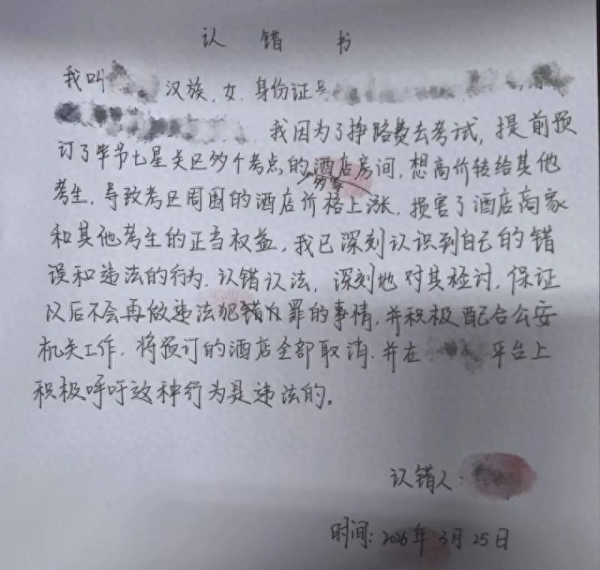 认错书
我叫 汉族,女,身份证号
我因为了挣路费去考试,提前预
订了毕节七星关区多个考点的酒店房间,想高价转给其他
考生,导致考区周围的酒店价格上涨,损害了酒店商家
和其他考生的正当权益,我已深刻认识到自己的错
误和违法的行为.认错认法,深刻地对其检讨,保证
以后不会再做违法犯罪的事情,并积极配合公安
机关工作,将预订的酒店全部取消.并在 平台上
积极呼吁这种行为是违法的。
认错人:
时间:2026年3月25日